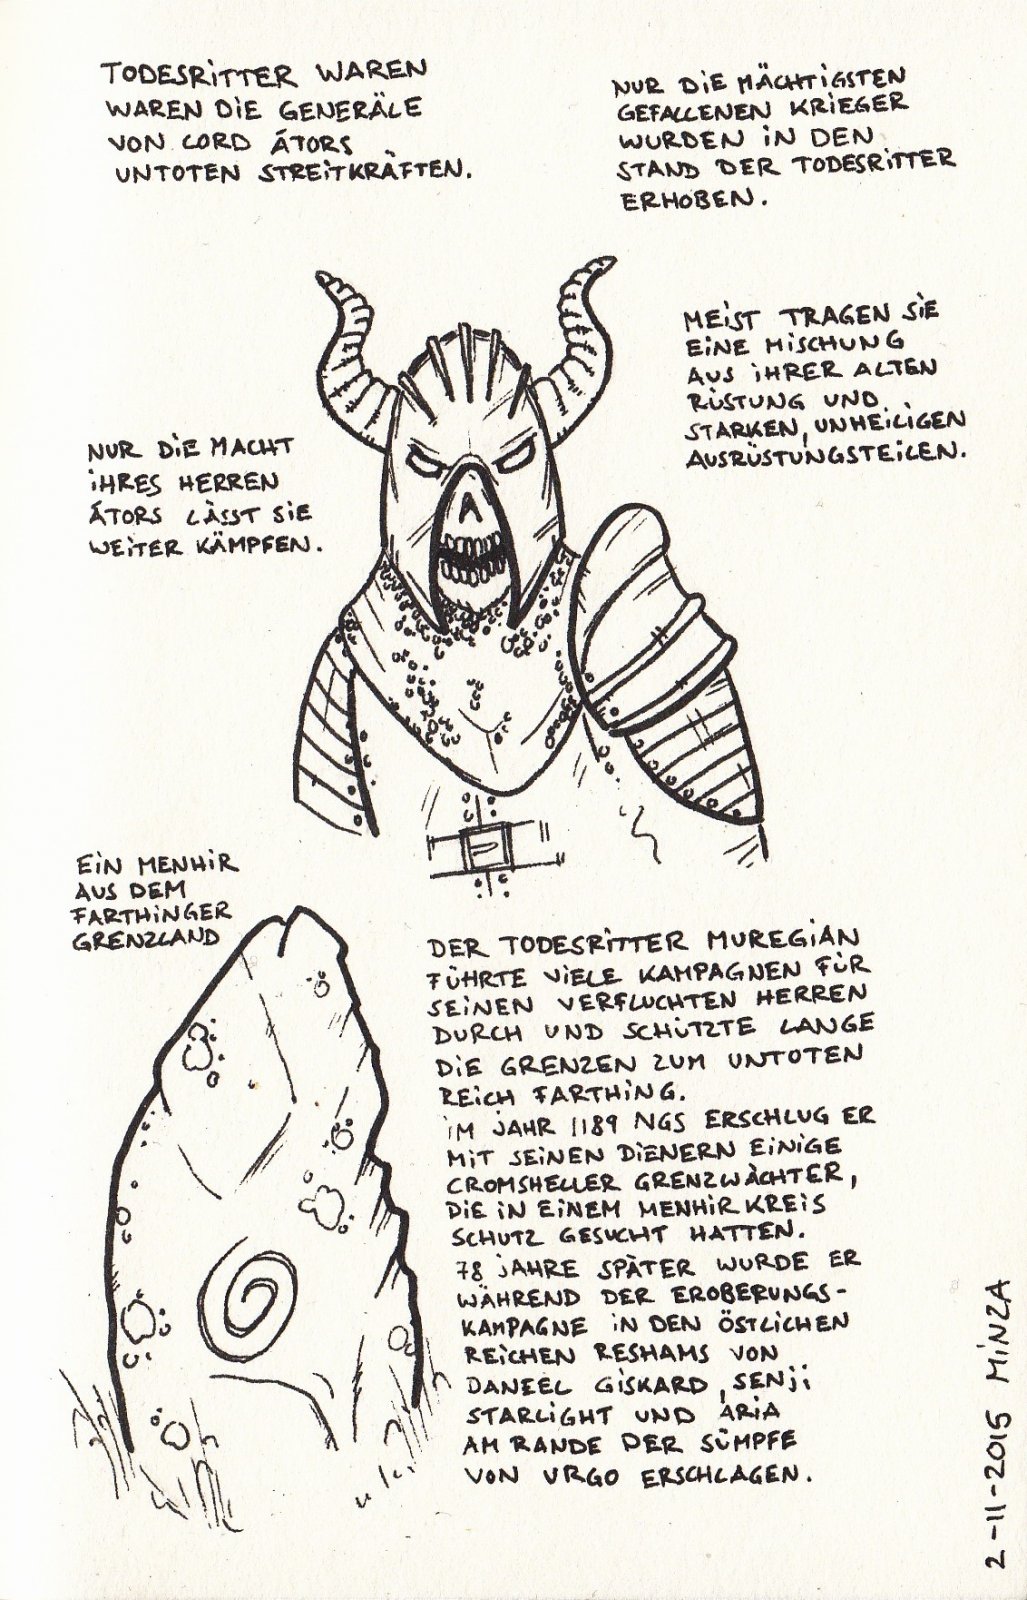 TODESRITTER WAREN
WAREN DIE GENERÄLE
VON LORD ÁTORS
UNTOTEN STREITKRÄFTEN.
NUR DIE MÄCHTIGSTEN
GEFALLENEN KRIEGER
WURDEN IN DEN
STAND DER TODESRITTER
ERHOBEN.
MEIST TRAGEN SIE
EINE MISCHUNG
AUS IHRER ALTEN
RÜSTUNG UND
STARKEN, UNHEILIGEN
AUSRÜSTUNGSTEILEN.
NUR DIE MACHT
IHRES HERREN
ÁTORS LÄSST SIE
WEITER KÄMPFEN.
EIN MENHIR
AUS DEM
FARTHINGER
GRENZLAND
DER TODESRITTER MUREGIAN
FÜHRTE VIELE KAMPAGNEN FÜR
SEINEN VERFLUCHTEN HERREN
DURCH UND SCHÜTZTE LANGE
DIE GRENZEN ZUM UNTOTEN
REICH FARTHING.
IM JAHR 1189 NGS ERSCHLUG ER
MIT SEINEN DIENERN EINIGE
CROMSHELLER GRENZWÄCHTER,
DIE IN EINEM MENHIRKREIS
SCHUTZ GESUCHT HATTEN.
78 JAHRE SPÄTER WURDE ER
WÄHREND DER EROBERUNGS-
KAMPAGNE IN DEN ÖSTLICHEN
REICHEN RESHAMS VON
DANEEL GISKARD, SENJI
STARLIGHT UND ARIA
AM RANDE DER SÜMPFE
VON URGO ERSCHLAGEN.
2-11-2015 MINZA